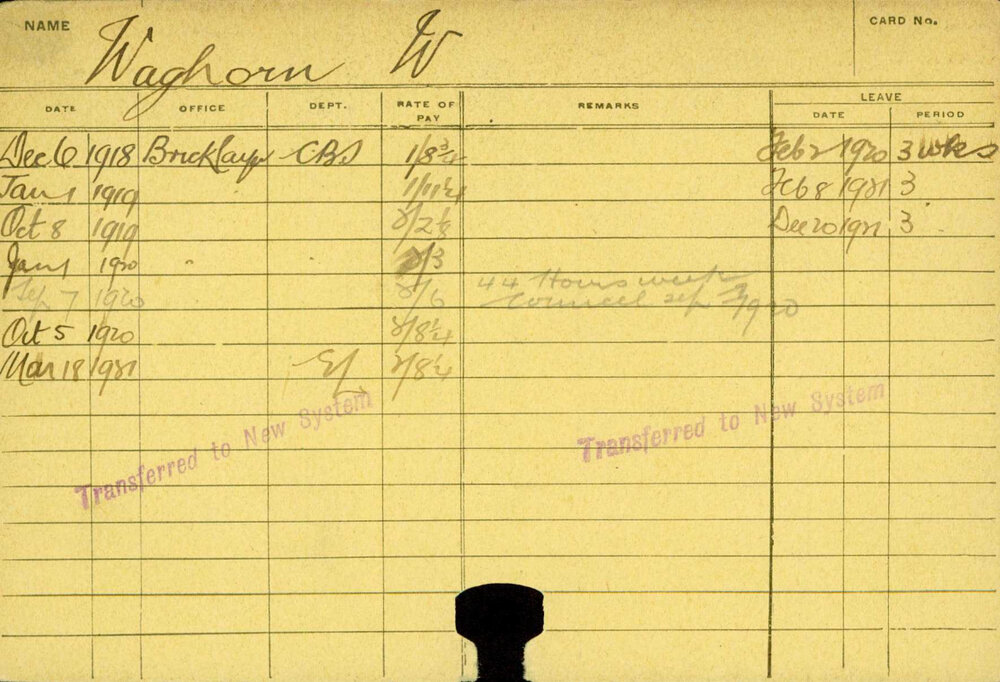 NAME Waghorn W CARD No.
DATE OFFICE DEPT. RATE OF PAY REMARKS LEAVE
DATE PERIOD
Dec 6 1918 Bricklayer CBS 1/8¾ Feb 2 1920 3 wks
Jan 1 1919 1/11¼ Feb 8 1921 3
Oct 8 1919 2/2 Dec 20 1921 3
Jan 1 1920 2/3
Sep 7 1920 2/6 44 Hours week
Council Sep 1920
Oct 5 1920 2/8¼
Mar 18 1921 2/8¼
Transferred to New System
Transferred to New System